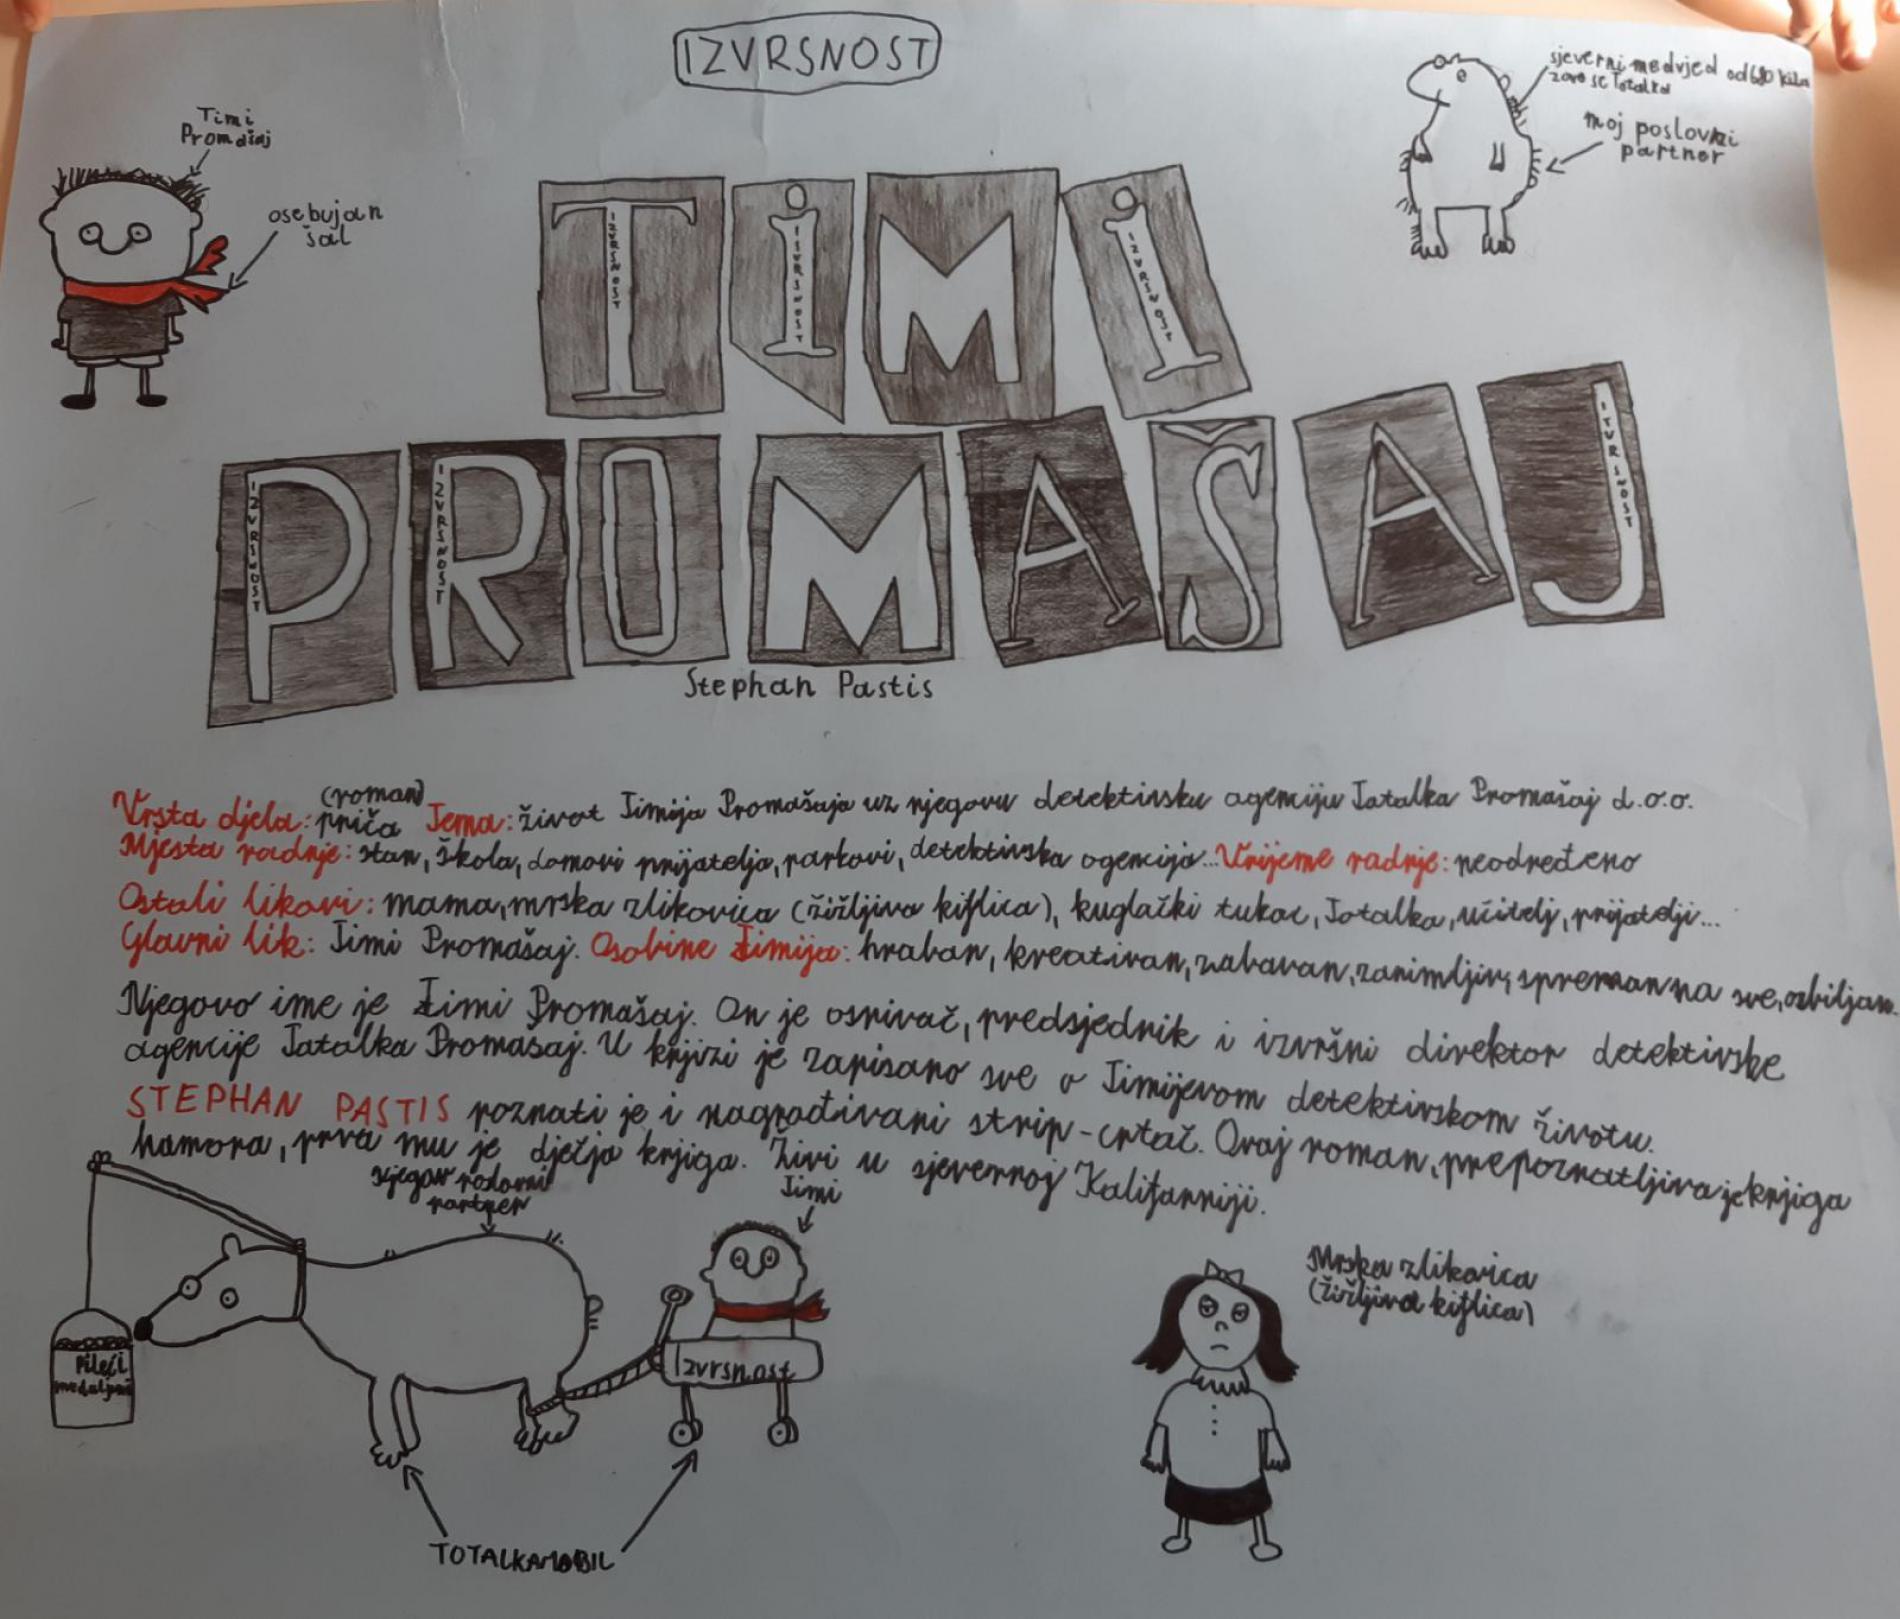 IZVRSNOST
Timi
Promašaj
osebujan
šal
sjeverni medvjed od 680 kila
zove se Totalka
moj poslovni
partner
TIMI
IZVRSNOST
IZVRSNOST
IZVRSNOST
PROMAŠAJ
IZVRSNOST
IZVRSNOST
IZVRSNOST
Stephan Pastis
(roman)
Vrsta djela: priča Tema: život Timija Promašaja uz njegovu detektivsku agenciju Totalka Promašaj d.o.o.
Mjesta radnje: stan, škola, domovi prijatelja, parkovi, detektivska agencija... Vrijeme radnje: neodređeno
Ostali likovi: mama, mrska zlikovica (žižljiva kiflica), kuglački tukac, Totalka, učitelj, prijatelji...
Glavni lik: Timi Promašaj. Osobine Timija: hrabar, kreativan, zabavan, zanimljiv, spreman na sve, ozbiljan.
Njegovo ime je Timi Promašaj. On je osnivač, predsjednik i izvršni direktor detektivske
agencije Totalka Promašaj. U knjizi je zapisano sve o Timijevom detektivskom životu.
STEPHAN PASTIS poznati je i nagrađivani strip-crtač. Ovaj roman, prepoznatljiva je knjiga
humora, prva mu je dječja knjiga. Živi u sjevernoj Kaliforniji.
Njegov poslovni
partner
Timi
Pileći
medaljoni
Izvrsnost
TOTALKAMOBIL
Mrska zlikovica
(žižljiva kiflica)